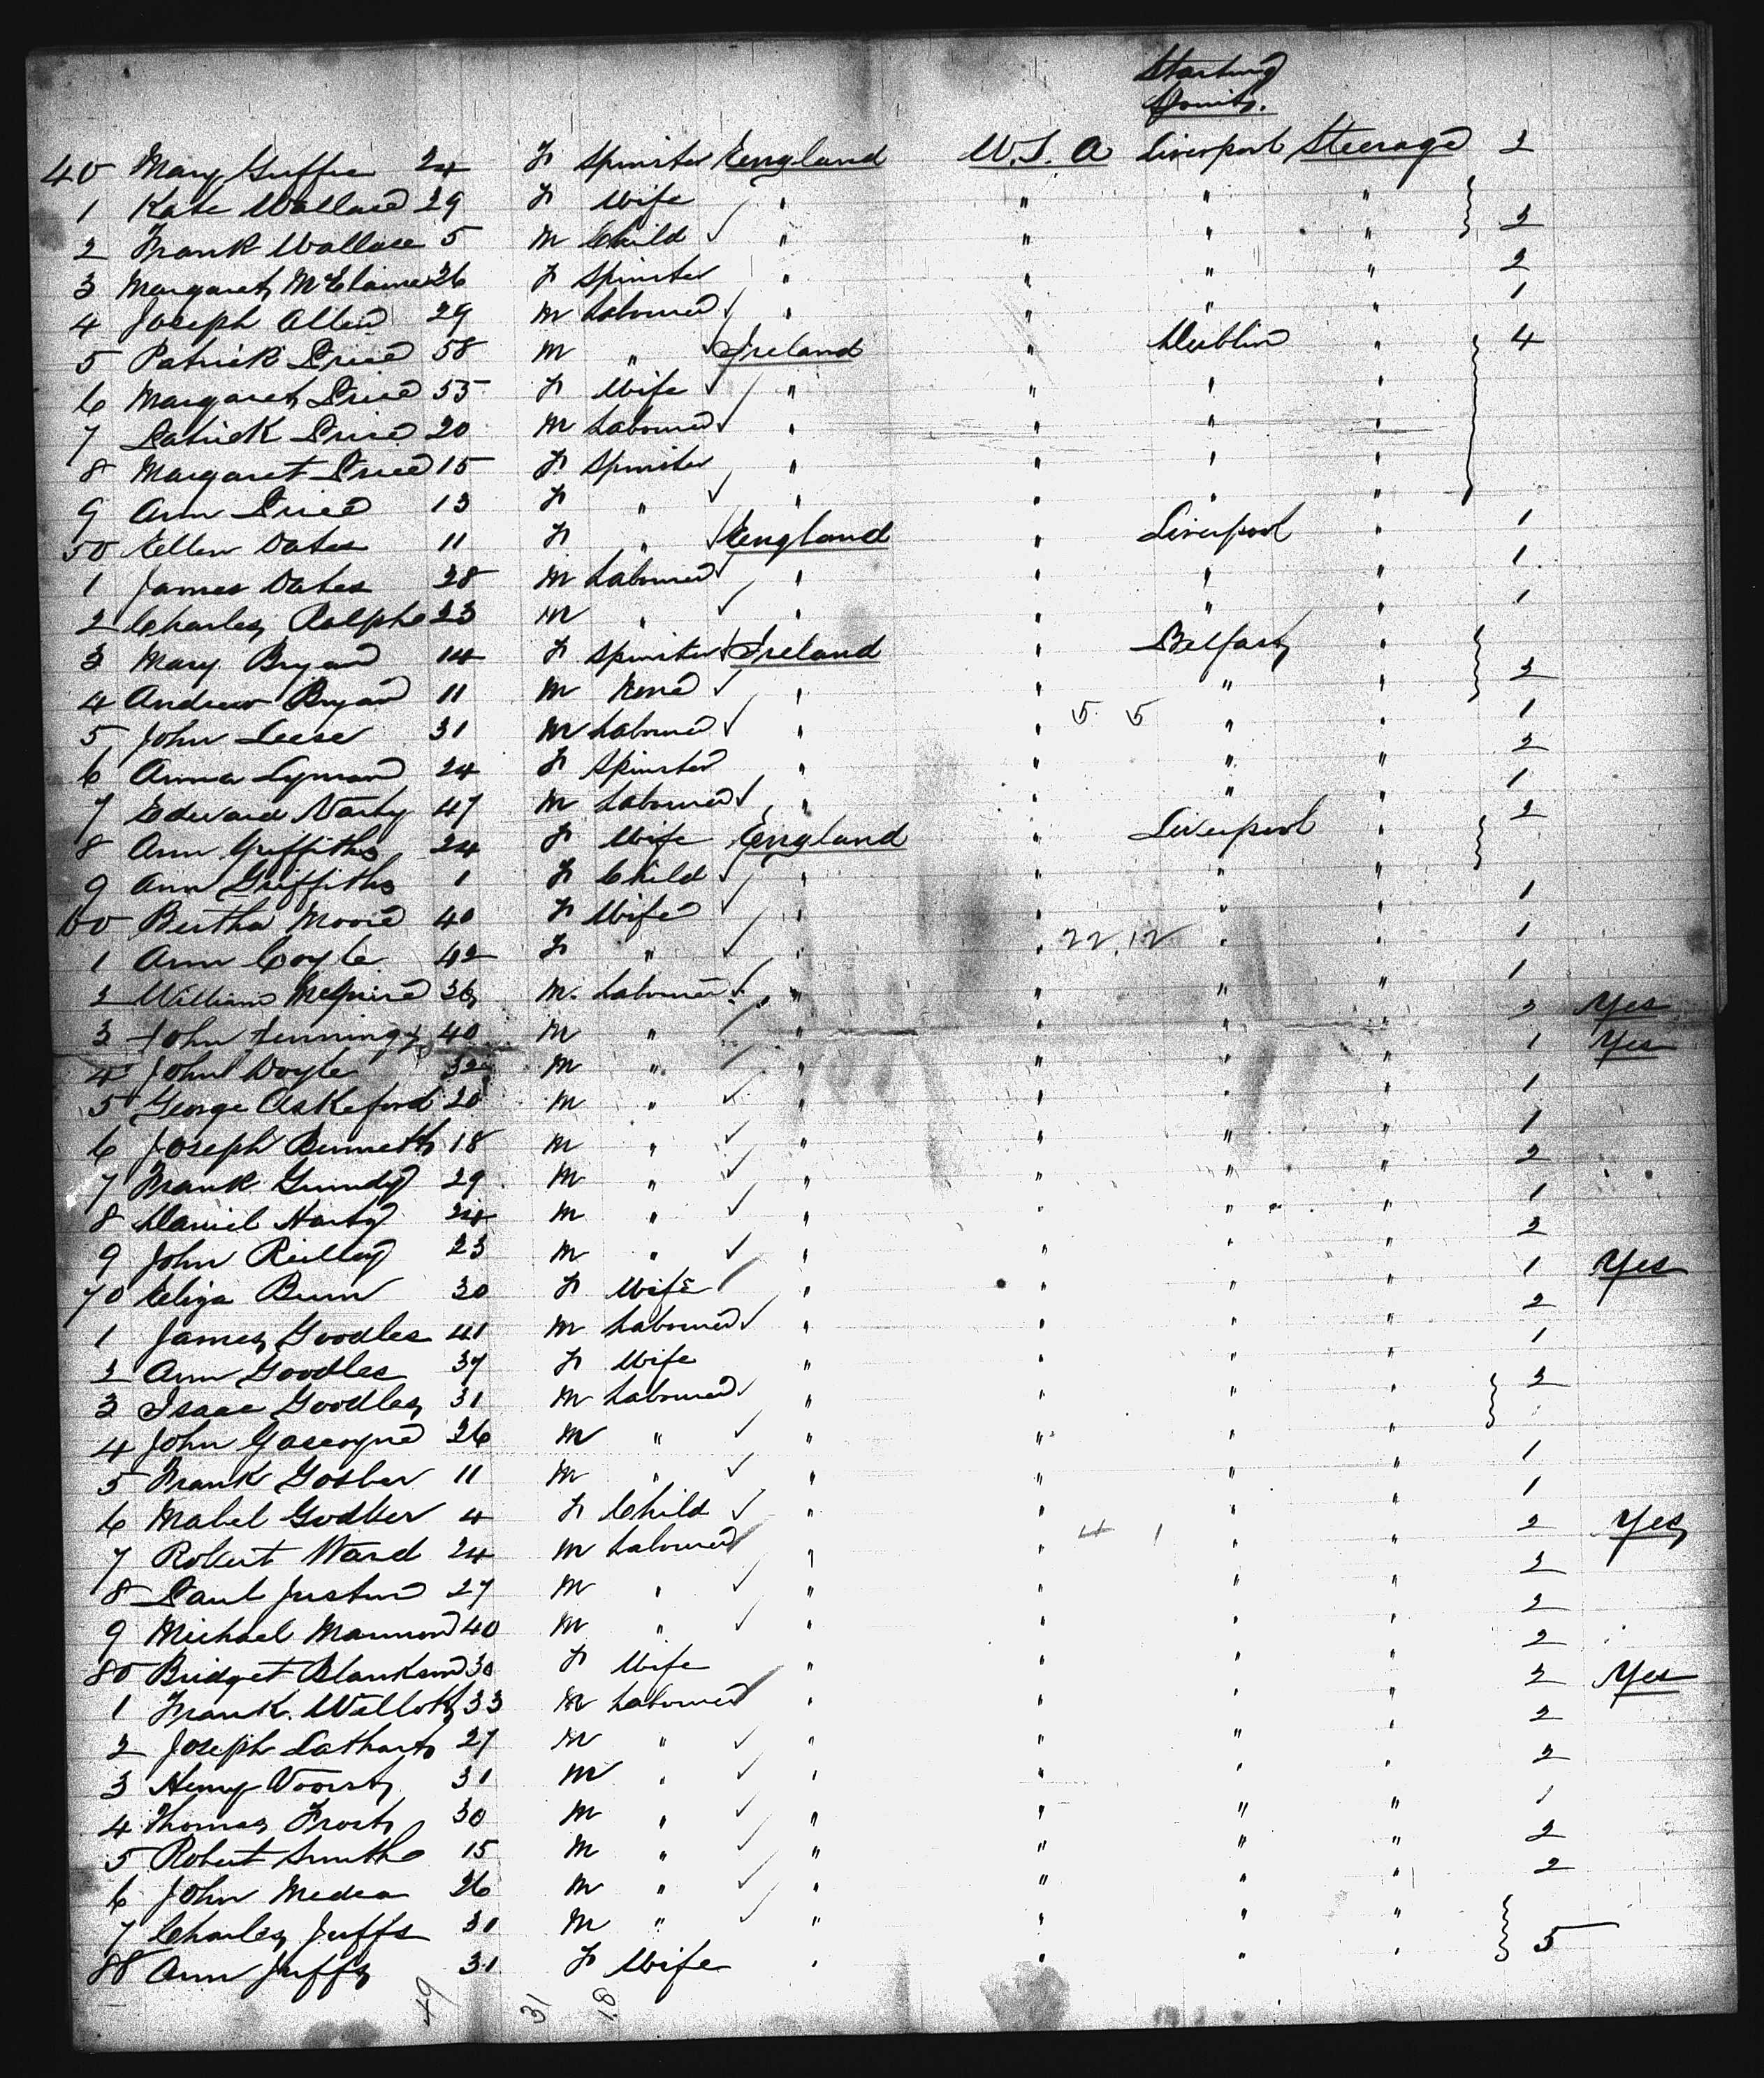 Starting
Points.
40 Mary Guffie 24 F Spinster England U.S.A Liverpool Steerage 2
1 Kate Wallace 29 F Wife " " " "
2 Frank Wallace 5 M Child ✓ " " " " 2
3 Margaret 26 F Spinster " " " " 2
4 Joseph Allen 29 M Labourer ✓ " " " " 1
5 Patrick Price 58 M " ✓ Ireland " Dublin " 4
6 Margaret Price 55 F Wife ✓ " " " "
7 Patrick Price 20 M Labourer ✓ " " " "
8 Margaret Price 15 F Spinster " " " "
9 Ann Price 13 F " ✓ " " " "
50 Ellen Oates 11 F " ✓ England " Liverpool " 1
1 James Oates 28 M Labourer ✓ " " " " 1
2 Charles Ralph 23 M " ✓ " " " " 1
3 Mary Bryan 14 F Spinster ✓ Ireland " Belfast "
4 Andrew Bryan 11 M None ✓ " " " " 2
5 John Leese 31 M Labourer ✓ " " 5 5 " " 1
6 Anna Lyman 24 F Spinster " " " " 2
7 Edward 47 M Labourer ✓ " " " " 1
8 Ann Griffiths 24 F Wife England " Liverpool " 2
9 Ann Griffiths 1 F Child ✓ " " " "
60 Bertha Moore 40 F Wife ✓ " " " " 1
1 Ann Coyle 42 F " ✓ " " 22.12 " " 1
2 William McGuire 36 M. Labourer ✓ " " " " 1
3 John Jennings 40 M " " " " " 2 Yes
4 John Doyle 32 M " " " " " 1 Yes
5 George Askeford 20 M " ✓ " " " " 1
6 Joseph Bennett 18 M " ✓ " " " " 1
7 Frank Gundy 29 M " ✓ " " " " 2
8 Daniel Harty 24 M " ✓ " " " " 1
9 John Reilley 23 M " ✓ " " " " 2
70 Eliza Bunn 30 F Wife " " " " 1 Yes
1 James Goodles 41 M Labourer ✓ " " " " 2
2 Ann Goodles 37 F Wife " " " " 1
3 Isaac Goodles 31 M Labourer ✓ " " " " 2
4 John Gascoyne 26 M " ✓ " " " "
5 Frank Godber 11 M " ✓ " " " " 1
6 Mabel Godber 4 F Child ✓ " " " " 1
7 Robert Ward 24 M Labourer " " 4 1 " " 2 Yes
8 Paul Justin 27 M " ✓ " " " " 2
9 Michael Mannon 40 M " ✓ " " " " 2
80 Bridget 30 F Wife " " " " 2
1 Frank. 33 M Labourer " " " " 2 Yes
2 Joseph 27 M " ✓ " " " " 2
3 Henry 31 M " ✓ " " " " 2
4 Thomas Frost 30 M " ✓ " " " " 1
5 Robert Smith 15 M " ✓ " " " " 2
6 John Medea 26 M " ✓ " " " " 2
7 Charles Juffs 31 M " ✓ " " " "
88 Ann Juffs 31 F Wife " " " " 5
49 31 18